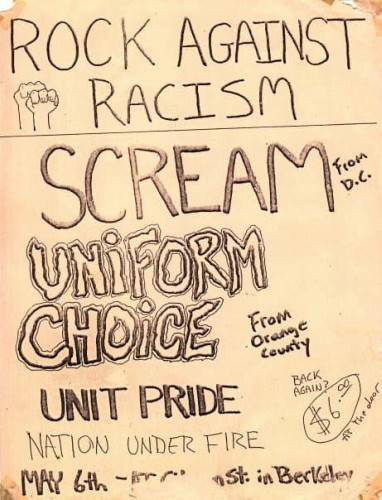 ROCK AGAINST
RACISM
SCREAM
From
D.C.
UNiFORM
CHOiCE
From
Orange
county
UNIT PRIDE
BACK
AGAIN?
$6.00
at the door
NATION UNDER FIRE
MAY 6th - St. in Berkeley